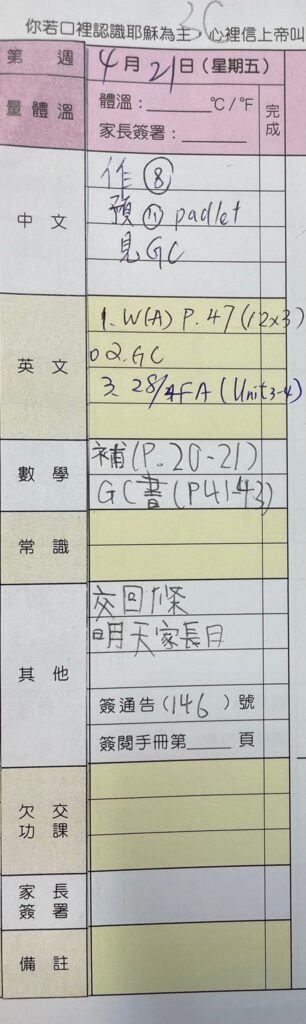 3C
你若口裡認識耶穌為主，心裡信上帝叫
第 週 4月21日(星期五)
量體溫 體溫：______℃/℉ 完成
家長簽署：______
中文 作⑧
預⑪ padlet
見GC
英文 1. W(A) P.47 (12x3)
2. GC
3. 28/4 FA (Unit 3-4)
數學 補(P.20-21)
GC書(P41-43)
常識
其他 交回條
明天家長日
簽通告(146)號
簽閱手冊第____頁
欠交功課
家長簽署
備註